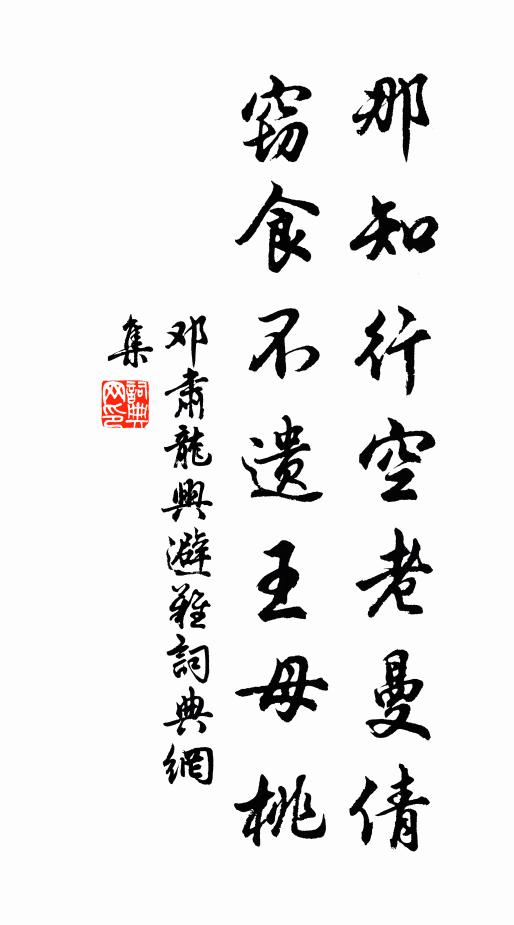 那知行空老曼倩
窃食不遗王母桃
邓肃龍興避難詞典網
集
詞典网印